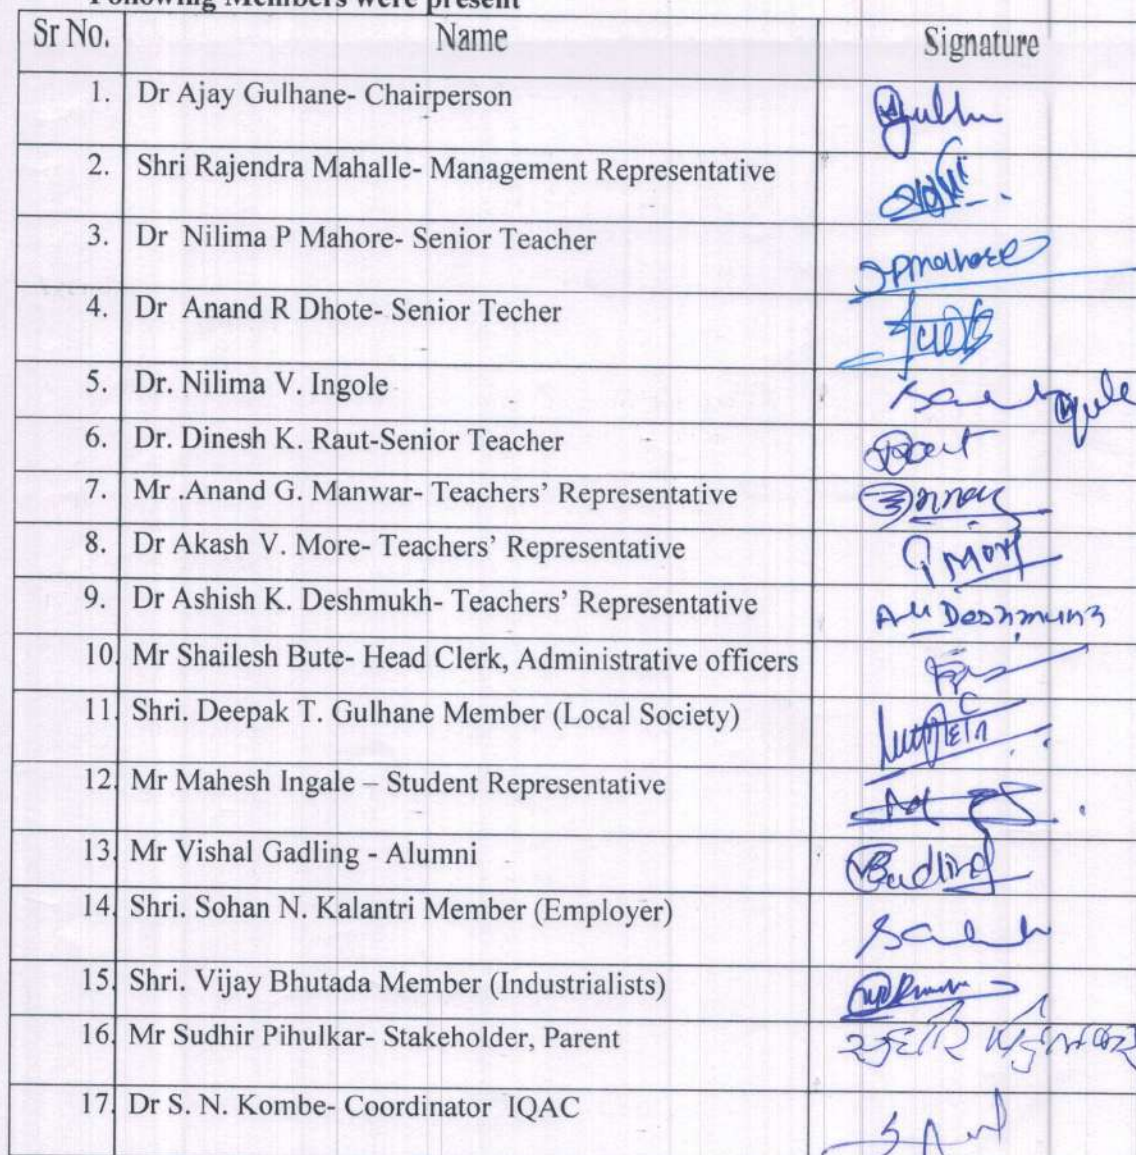 Following Members were present
Sr No. Name Signature
1. Dr Ajay Gulhane- Chairperson
2. Shri Rajendra Mahalle- Management Representative
3. Dr Nilima P Mahore- Senior Teacher
4. Dr Anand R Dhote- Senior Techer
5. Dr. Nilima V. Ingole
6. Dr. Dinesh K. Raut-Senior Teacher
7. Mr .Anand G. Manwar- Teachers' Representative
8. Dr Akash V. More- Teachers' Representative
9. Dr Ashish K. Deshmukh- Teachers' Representative
10. Mr Shailesh Bute- Head Clerk, Administrative officers
11. Shri. Deepak T. Gulhane Member (Local Society)
12. Mr Mahesh Ingale – Student Representative
13. Mr Vishal Gadling - Alumni Gadling
14. Shri. Sohan N. Kalantri Member (Employer)
15. Shri. Vijay Bhutada Member (Industrialists)
16. Mr Sudhir Pihulkar- Stakeholder, Parent
17. Dr S. N. Kombe- Coordinator IQAC